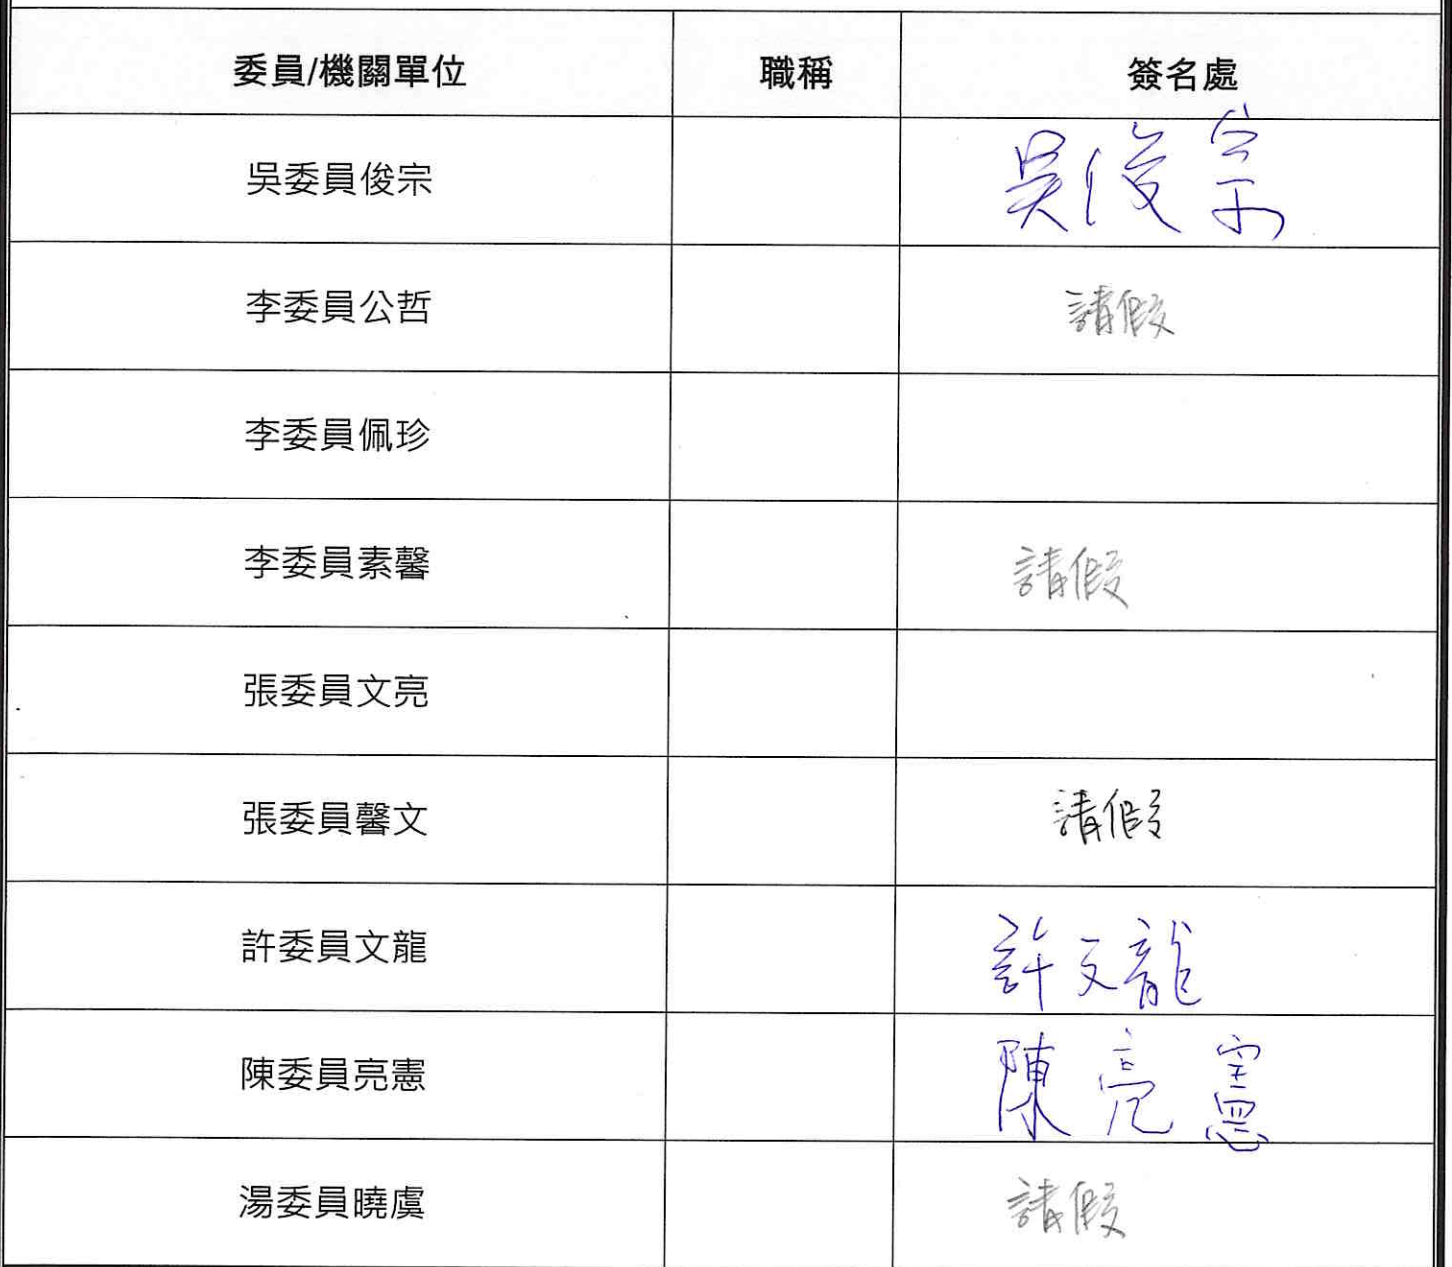 委員/機關單位 職稱 簽名處
吳委員俊宗 吳俊宗
李委員公哲 請假
李委員佩珍
李委員素馨 請假
張委員文亮
張委員馨文 請假
許委員文龍 許文龍
陳委員亮憲 陳亮憲
湯委員曉虞 請假